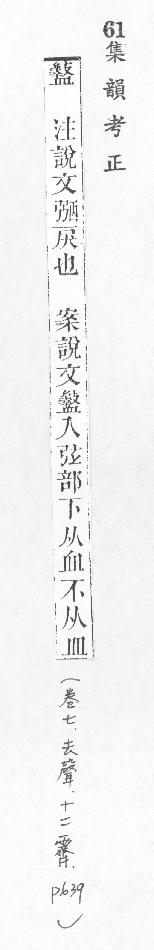 61集韻考正
盭 注說文弻戾也 案說文盭入弦部下从血不从皿
(卷七.去聲.十二霽. p.639)